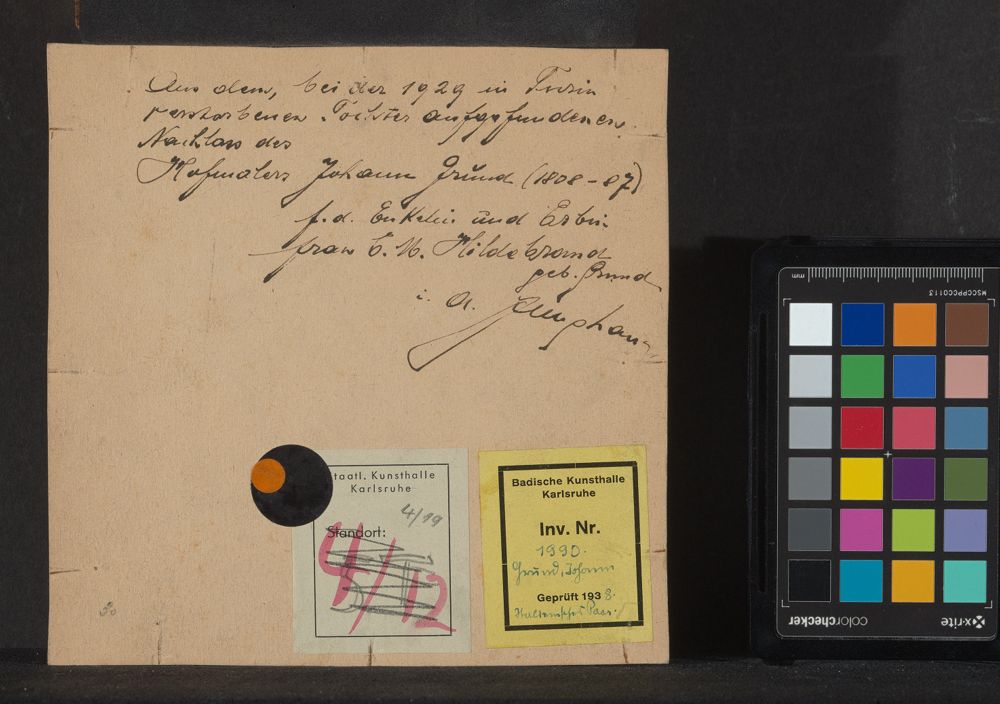 Aus dem, bei der 1929 in Turin
verstorbenen Tochter aufgefundenen
Nachlass des
Hofmalers Johann Grund (1808-87)
f.d. Enkelin und Erbin
Frau E. M. Hildebrand
geb. Grund
i. A. Junghans
taatl. Kunsthalle
Karlsruhe
4/19
Standort:
4/12
Badische Kunsthalle
Karlsruhe
Inv. Nr.
1990.
Grund, Johann
Geprüft 1938.
Italienisches Paar.
mm
MSCCPPCC0113
colorchecker
x-rite